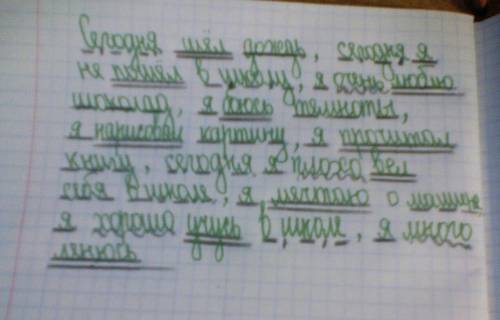 Сегодня шёл дождь, сегодня я
не пошёл в школу, я очень люблю
шоколад, я боюсь темноты,
я нарисовал картину, я прочитал
книгу, сегодня я плоха вел
себя в школе, я мечтаю о машине,
я хорошо учусь в школе, я много
ленюсь